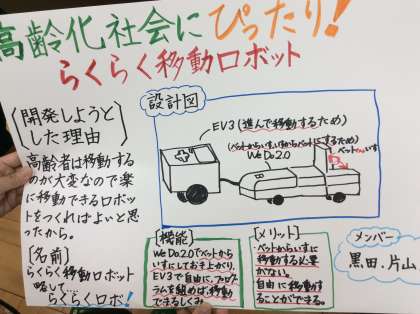 高齢化社会にぴったり!
らくらく移動ロボット
[開発しようと
した理由]
高齢者は移動する
のが大変なので楽
に移動できるロボッ
トをつくればよいと思
ったから。
[名前]
らくらく移動ロボット
略して....
らくらくロボ!
設計図
EV3(進んで移動するため)
(ベットからいす,いすからベットにするため)
WeDo2.0
ベット⇔いす
[機能]
WeDo2.0でベットから
いすにしてお手上がり。
EV3で自由に、プログ
ラムを組めば、移動
できるしくみ
[メリット]
・ベットからいすに
移動する必要
がない。
・自由に移動す
ることができる。
メンバー
黒田、片山